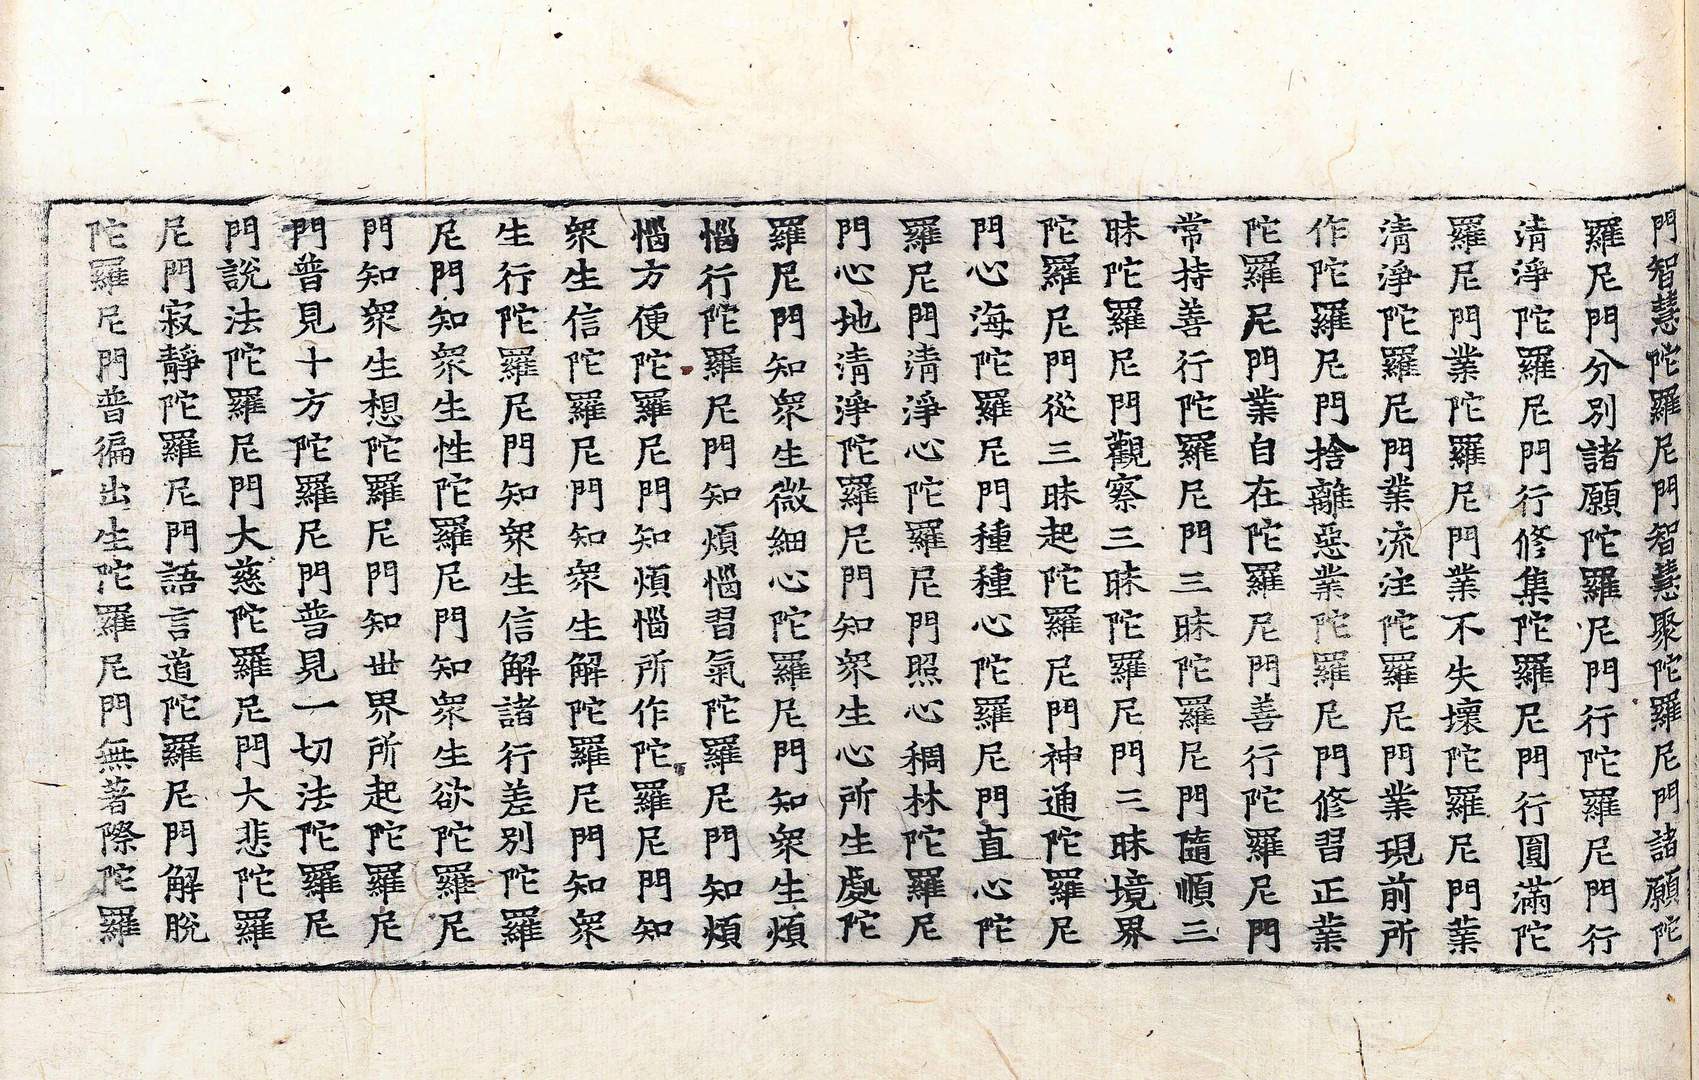 門智慧陀羅尼門智慧聚陀羅尼門諸願陀
羅尼門分別諸願陀羅尼門行陀羅尼門行
清淨陀羅尼門行修集陀羅尼門行圓滿陀
羅尼門業陀羅尼門業不失壞陀羅尼門業
清淨陀羅尼門業流注陀羅尼門業現前所
作陀羅尼門捨離惡業陀羅尼門修習正業
陀羅尼門業自在陀羅尼門善行陀羅尼門
常持善行陀羅尼門三昧陀羅尼門隨順三
昧陀羅尼門觀察三昧陀羅尼門三昧境界
陀羅尼門從三昧起陀羅尼門神通陀羅尼
門心海陀羅尼門種種心陀羅尼門直心陀
羅尼門清淨心陀羅尼門照心稠林陀羅尼
門心地清淨陀羅尼門知衆生心所生處陀
羅尼門知衆生微細心陀羅尼門知衆生煩
惱行陀羅尼門知煩惱習氣陀羅尼門知煩
惱方便陀羅尼門知煩惱所作陀羅尼門知
衆生信陀羅尼門知衆生解陀羅尼門知衆
生行陀羅尼門知衆生信解諸行差別陀羅
尼門知衆生性陀羅尼門知衆生欲陀羅尼
門知衆生想陀羅尼門知世界所起陀羅尼
門普見十方陀羅尼門普見一切法陀羅尼
門說法陀羅尼門大慈陀羅尼門大悲陀羅
尼門寂靜陀羅尼門語言道陀羅尼門解脫
陀羅尼門普徧出生陀羅尼門無著際陀羅